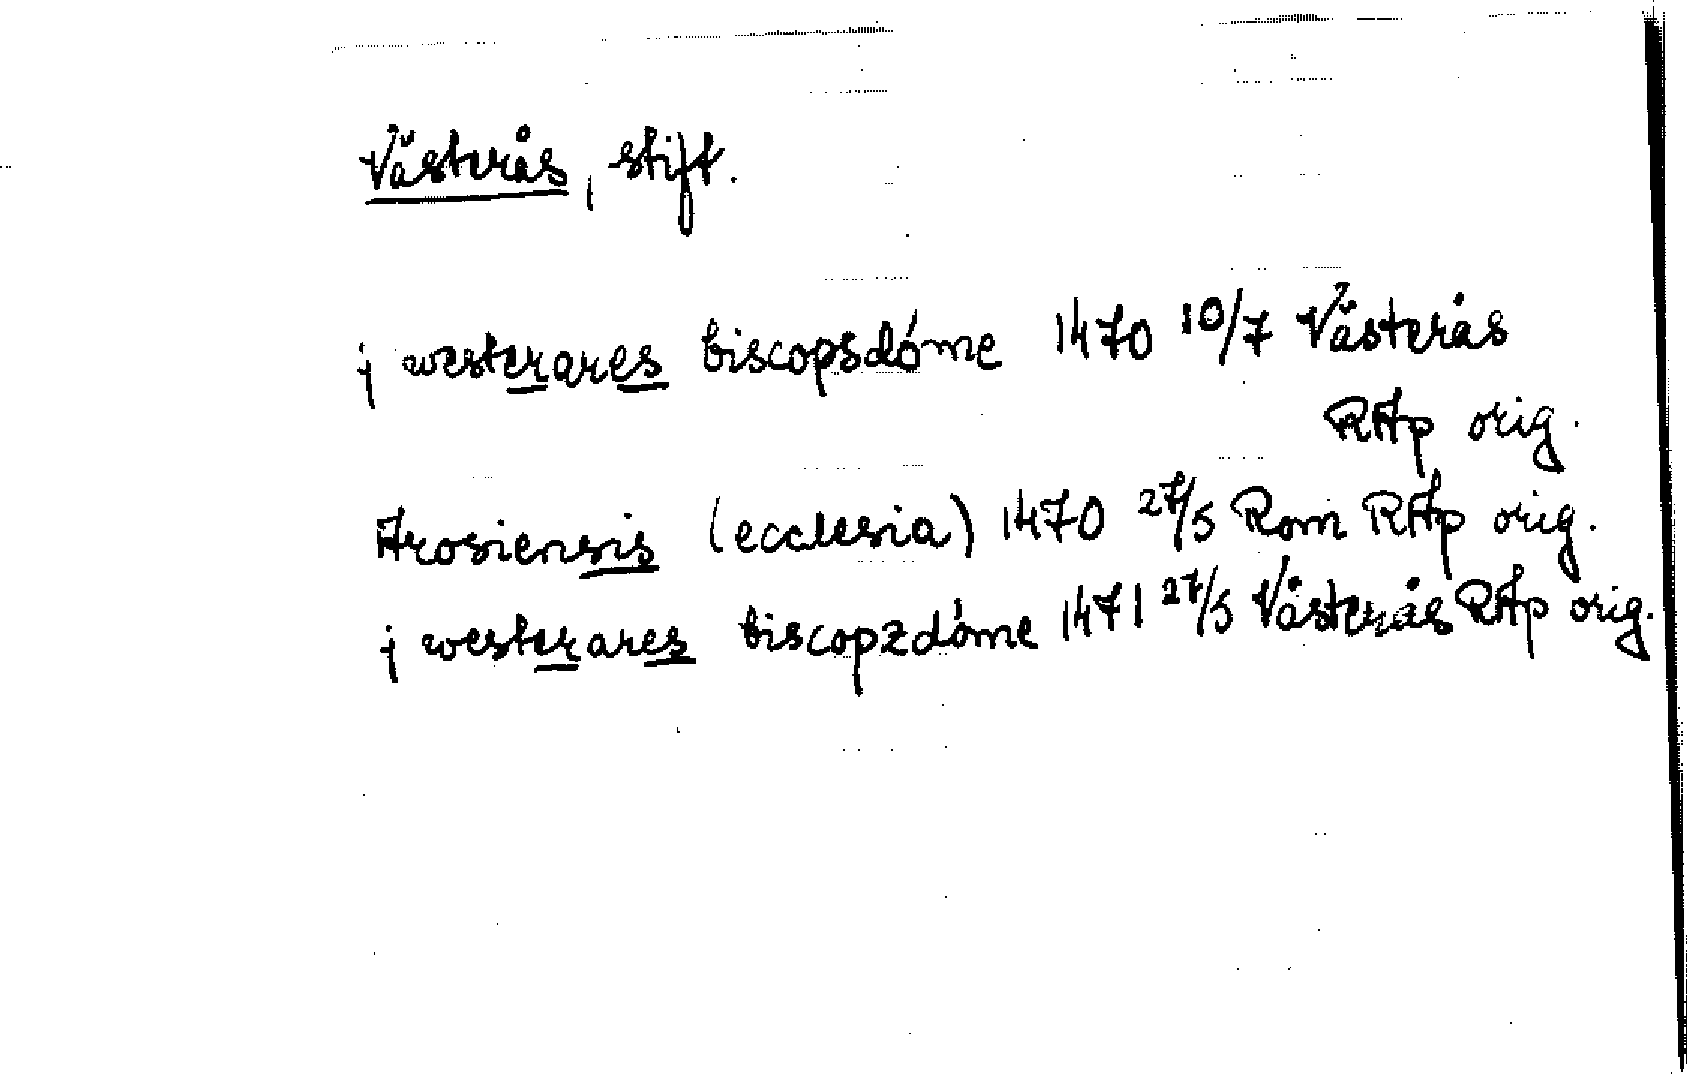 Västerås, stift.
j westerares biscopsdóme 1470 10/7 Västerås
RAp orig.
Arosiensis (ecclesia) 1470 27/5 Rom RAp orig.
j westerares biscopzdóme 1471 27/5 Västerås RAp orig.